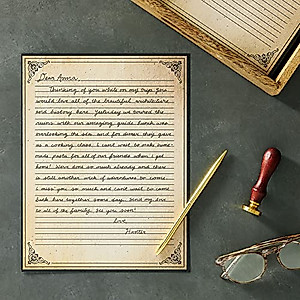 Dear Anna,
Thinking of you while on my trip. You
would love all of the beautiful architecture
and history here. Yesterday we toured the
ruins with our amazing guide. Lunch was
overlooking the sea, and for dinner they gave
us a cooking class. I can't wait to make home-
made pasta for all of our friends when I get
home! We've done so much already and there
is still another week of adventures to come.
I miss you so much and can't wait to come
back here together some day. Send my love
to all of the family. See you soon!
Love,
Hunter